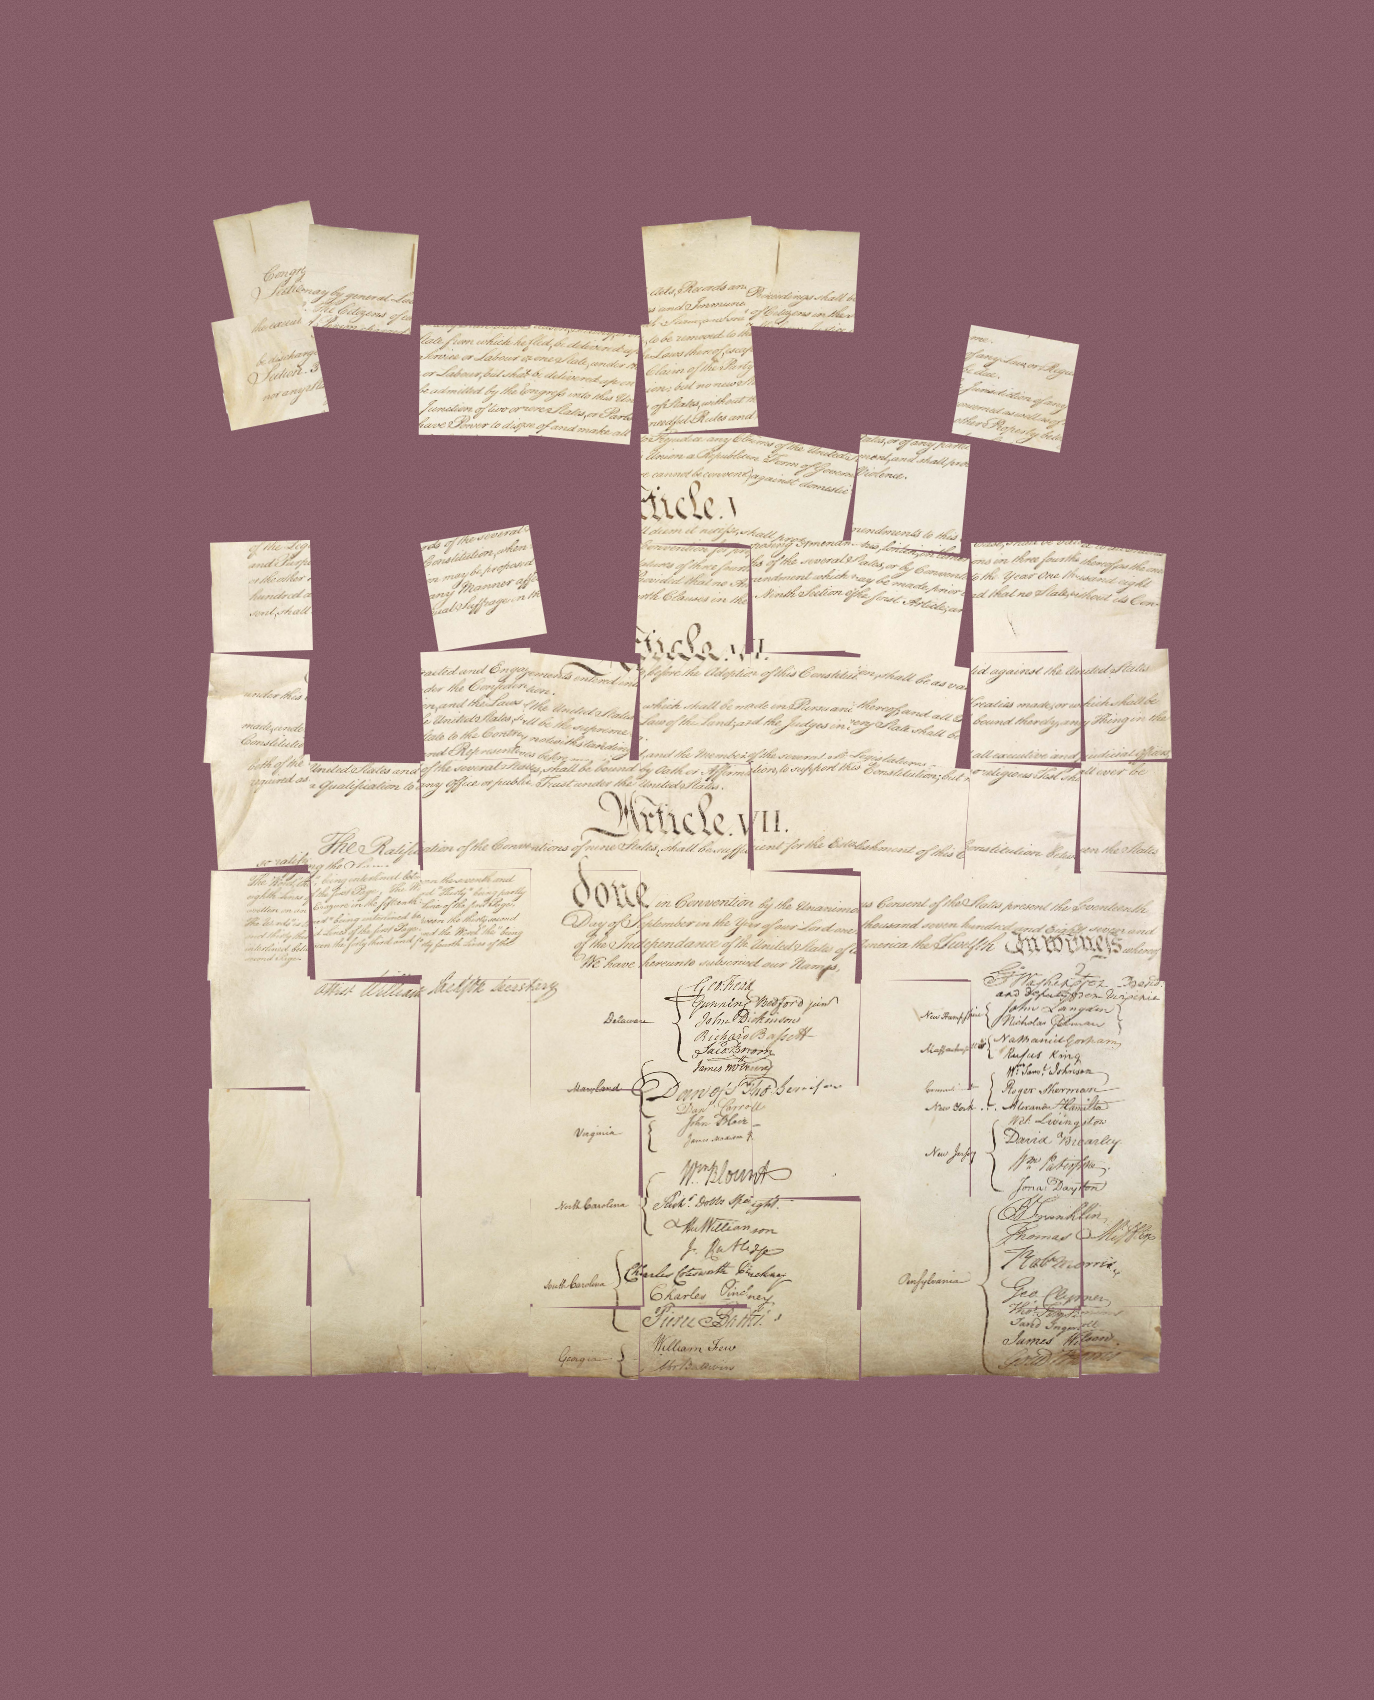 Acts, Records and Proceedings shall be
Congress may by general Laws
s and Immunities of Citizens in the
the Citizens of
to be removed to the
State from which he fled, be delivered up
Service or Labour in one State, under the Laws thereof, escap
of any Law or Regu
or Labour, but shall be delivered up on Claim of the Party
be due.
be discharged
Section. 3
be admitted by the Congress into this Union; but no new St
Jurisdiction of any
not any
Junction of two or more States, or Parts of States, without the
concerned as well as of
have Power to dispose of and make all needful Rules and
other Property belo
to Prejudice any Claims of the United States, or of any parti
Union a Republican Form of Government, and shall pro
cannot be convened) against domestic Violence.
ticle. V
ll deem it necessary, shall propose Amendments to this
of the Leg
of the several
Convention for proposing Amendments
Constitution, when
latures of three fourths of the several States, or by Conventions in three fourths thereof, as the one
or the other
may be proposed
Provided that no Amendment which may be made prior to the Year One thousand eight
hundred a
any Manner affe
rth Clauses in the Ninth Section of the first Article; an d that no State, without its Con-
sent, shall
ual Suffrage in the
ticle. VI.
racted and Engagements entered into, before the Adoption of this Constitution, shall be as va lid against the United States
under this
der the Confederation.
en, and the Laws of the United States which shall be made in Pursuance thereof; and all Treaties made, or which shall be
made, under
e United States, shall be the supreme Law of the Land; and the Judges in every State shall be bound thereby, any Thing in the
Constitution
State to the Contrary notwithstanding.
and Representatives before mentioned, and the Members of the several State Legislatures, all executive and judicial Officers,
both of the United States and of the several States, shall be bound by Oath or Affirmation, to support this Constitution; but no religious Test shall ever be
required as a Qualification to any Office or public Trust under the United States.
Article. VII.
The Ratification of the Conventions of nine States, shall be sufficient for the Establishment of this Constitution between the States
so ratifying the Same.
The Word, "the," being interlined between the seventh and
eighth Lines of the first Page, The Word "Thirty" being partly
written on an Erazure in the fifteenth Line of the first Page,
The Words "is tried" being interlined between the thirty second
and thirty third Lines of the first Page and the Word "the" being
interlined between the forty third and forty fourth Lines of the
second Page.
done in Convention by the Unanimous Consent of the States present the Seventeenth
Day of September in the Year of our Lord one thousand seven hundred and Eighty seven and
of the Independance of the United States of America the Twelfth In witness whereof
We have hereunto subscribed our Names,
Attest William Jackson Secretary
Go Washington Presidt
and deputy from Virginia
Delaware
Geo: Read
Gunning Bedford jun
John Dickinson
Richard Bassett
Jaco: Broom
Maryland
James McHenry
Dan of St Tho. Jenifer
Danl Carroll
Virginia
John Blair
James Madison Jr
North Carolina
Wm Blount
Richd Dobbs Spaight.
Hu Williamson
South Carolina
J. Rutledge
Charles Cotesworth Pinckney
Charles Pinckney
Pierce Butler.
Georgia
William Few
Abr Baldwin
New Hampshire
John Langdon
Nicholas Gilman
Massachusetts
Nathaniel Gorham
Rufus King
Connecticut
Wm Saml Johnson
Roger Sherman
New York . . . Alexander Hamilton
New Jersey
Wil: Livingston
David Brearley.
Wm Paterson.
Jona: Dayton
Pensylvania
B Franklin
Thomas Mifflin
Robt Morris
Geo. Clymer
Thos. FitzSimons
Jared Ingersoll
James Wilson.
Gouv Morris